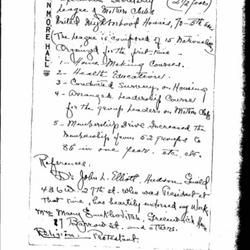 NMORE HALL
League of Mothers Clubs
United Neighborhood Houses, 70-5th Ave
The League is composed of 15 Nationalities
Organized for the first time -
1 - Home Making Courses
2 - Health Educational.
3 - Conducted Survey on Housing
4 - Arranged Leadership Course
for the group leaders in Mothers Clubs
5 - Membership Drive Increased the
Membership from 52 groups to
86 in one year. etc. etc.
References.
Dr John L. Elliott Hudson Guild
436 W 27th St. who was President at
that time, has heartily endorsed my Work.
Mrs Mary Simkhovitch, Greenwich House
Barrow St. and others.
Religion Protestant